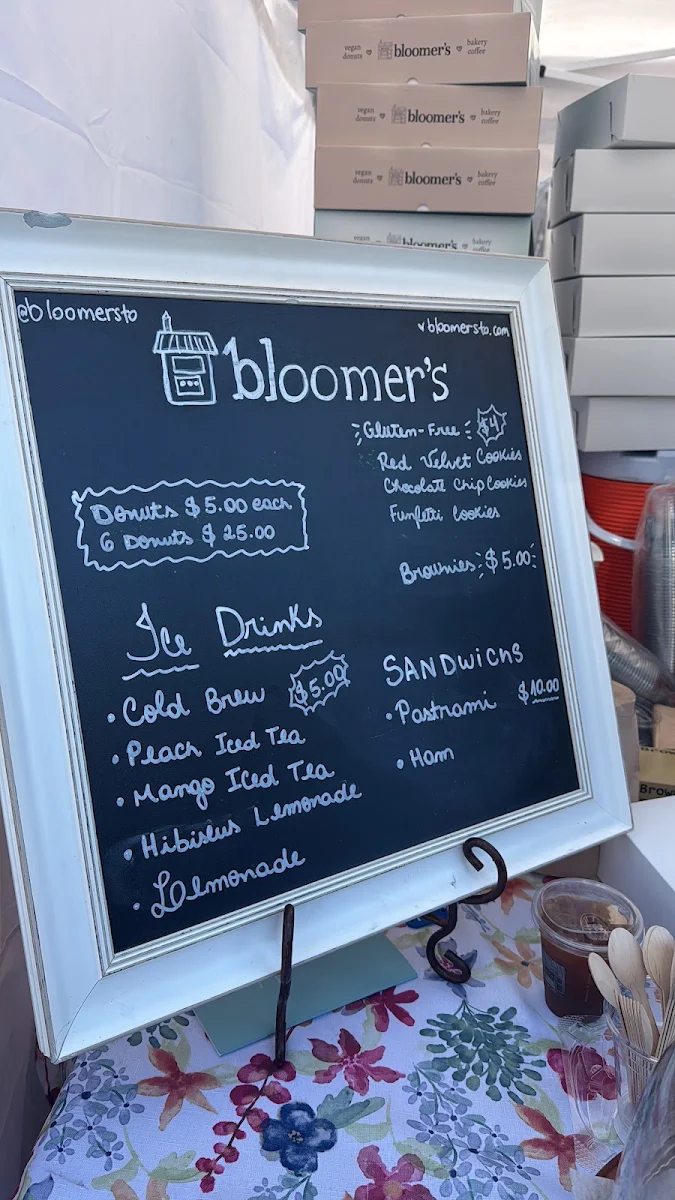 vegan donuts bloomer's bakery coffee
vegan donuts bloomer's bakery coffee
vegan donuts bloomer's bakery coffee
vegan bloomer's bakery
@bloomersto
bloomersto.com
bloomer's
Gluten-Free $4
Red Velvet Cookies
Chocolate Chip Cookies
Funfetti Cookies
Donuts $5.00 each
6 Donuts $25.00
Brownies $5.00
Ice Drinks
• Cold Brew $5.00
• Peach Iced Tea
• Mango Iced Tea
• Hibiscus Lemonade
• Lemonade
SANDWICHS
• Pastrami $10.00
• Ham
Brow